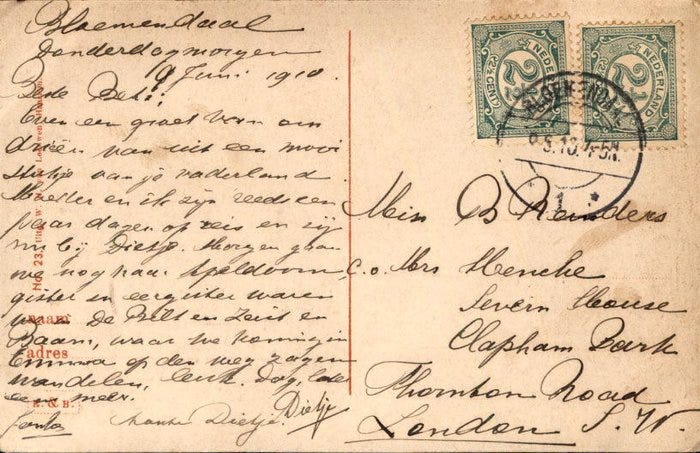 Bloemendaal
Donderdagmorgen
9 Juni 1910
Beste Bets!
Even een groet van ons
drieën van uit een mooi
stukje van je vaderland.
Moeder en ik zijn reeds een
paar dagen op reis en zijn
nu bij Dietje. Morgen gaan
we nog naar Apeldoorn,
gister en eergister waren
we De Bilt en Zeist en
Baarn, waar we Koningin
Emma op den weg zagen
wandelen, leuk. Dag, later
een meer.
Dietje
Dietje
naam
adres
No. 23.
NEDERLAND
2½
(2½ CENT)
NEDERLAND
2½
(2½ CENT)
BLOEMENDAAL
Miss B Reinders
c.o. Mrs Menche
Severn House
Clapham Park
Thornton Road
London S. W.